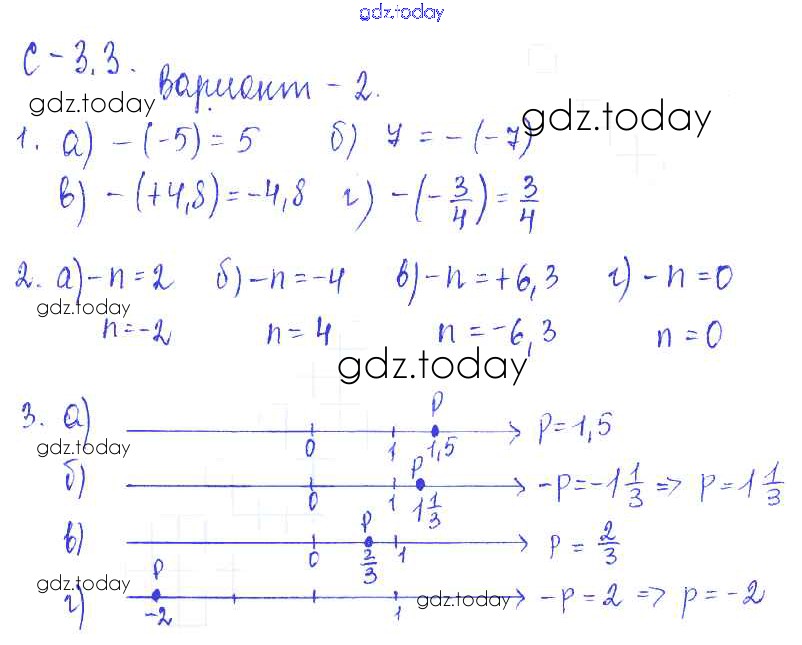 gdz.today
С-3.3.
Вариант - 2.
gdz.today
gdz.today
1. а) -(-5) = 5 б) 7 = -(-7)
в) -(+4,8) = -4,8 г) -(-3/4) = 3/4
2. а) -n = 2 б) -n = -4 в) -n = +6,3 г) -n = 0
gdz.today
n = -2 n = 4 n = -6,3 n = 0
gdz.today
3. а) 0 1 P 1,5 P = 1,5
gdz.today
б) 0 1 P 1 1/3 -P = -1 1/3 => P = 1 1/3
в) 0 P 2/3 1 P = 2/3
gdz.today
г) P -2 1 -P = 2 => P = -2
gdz.today